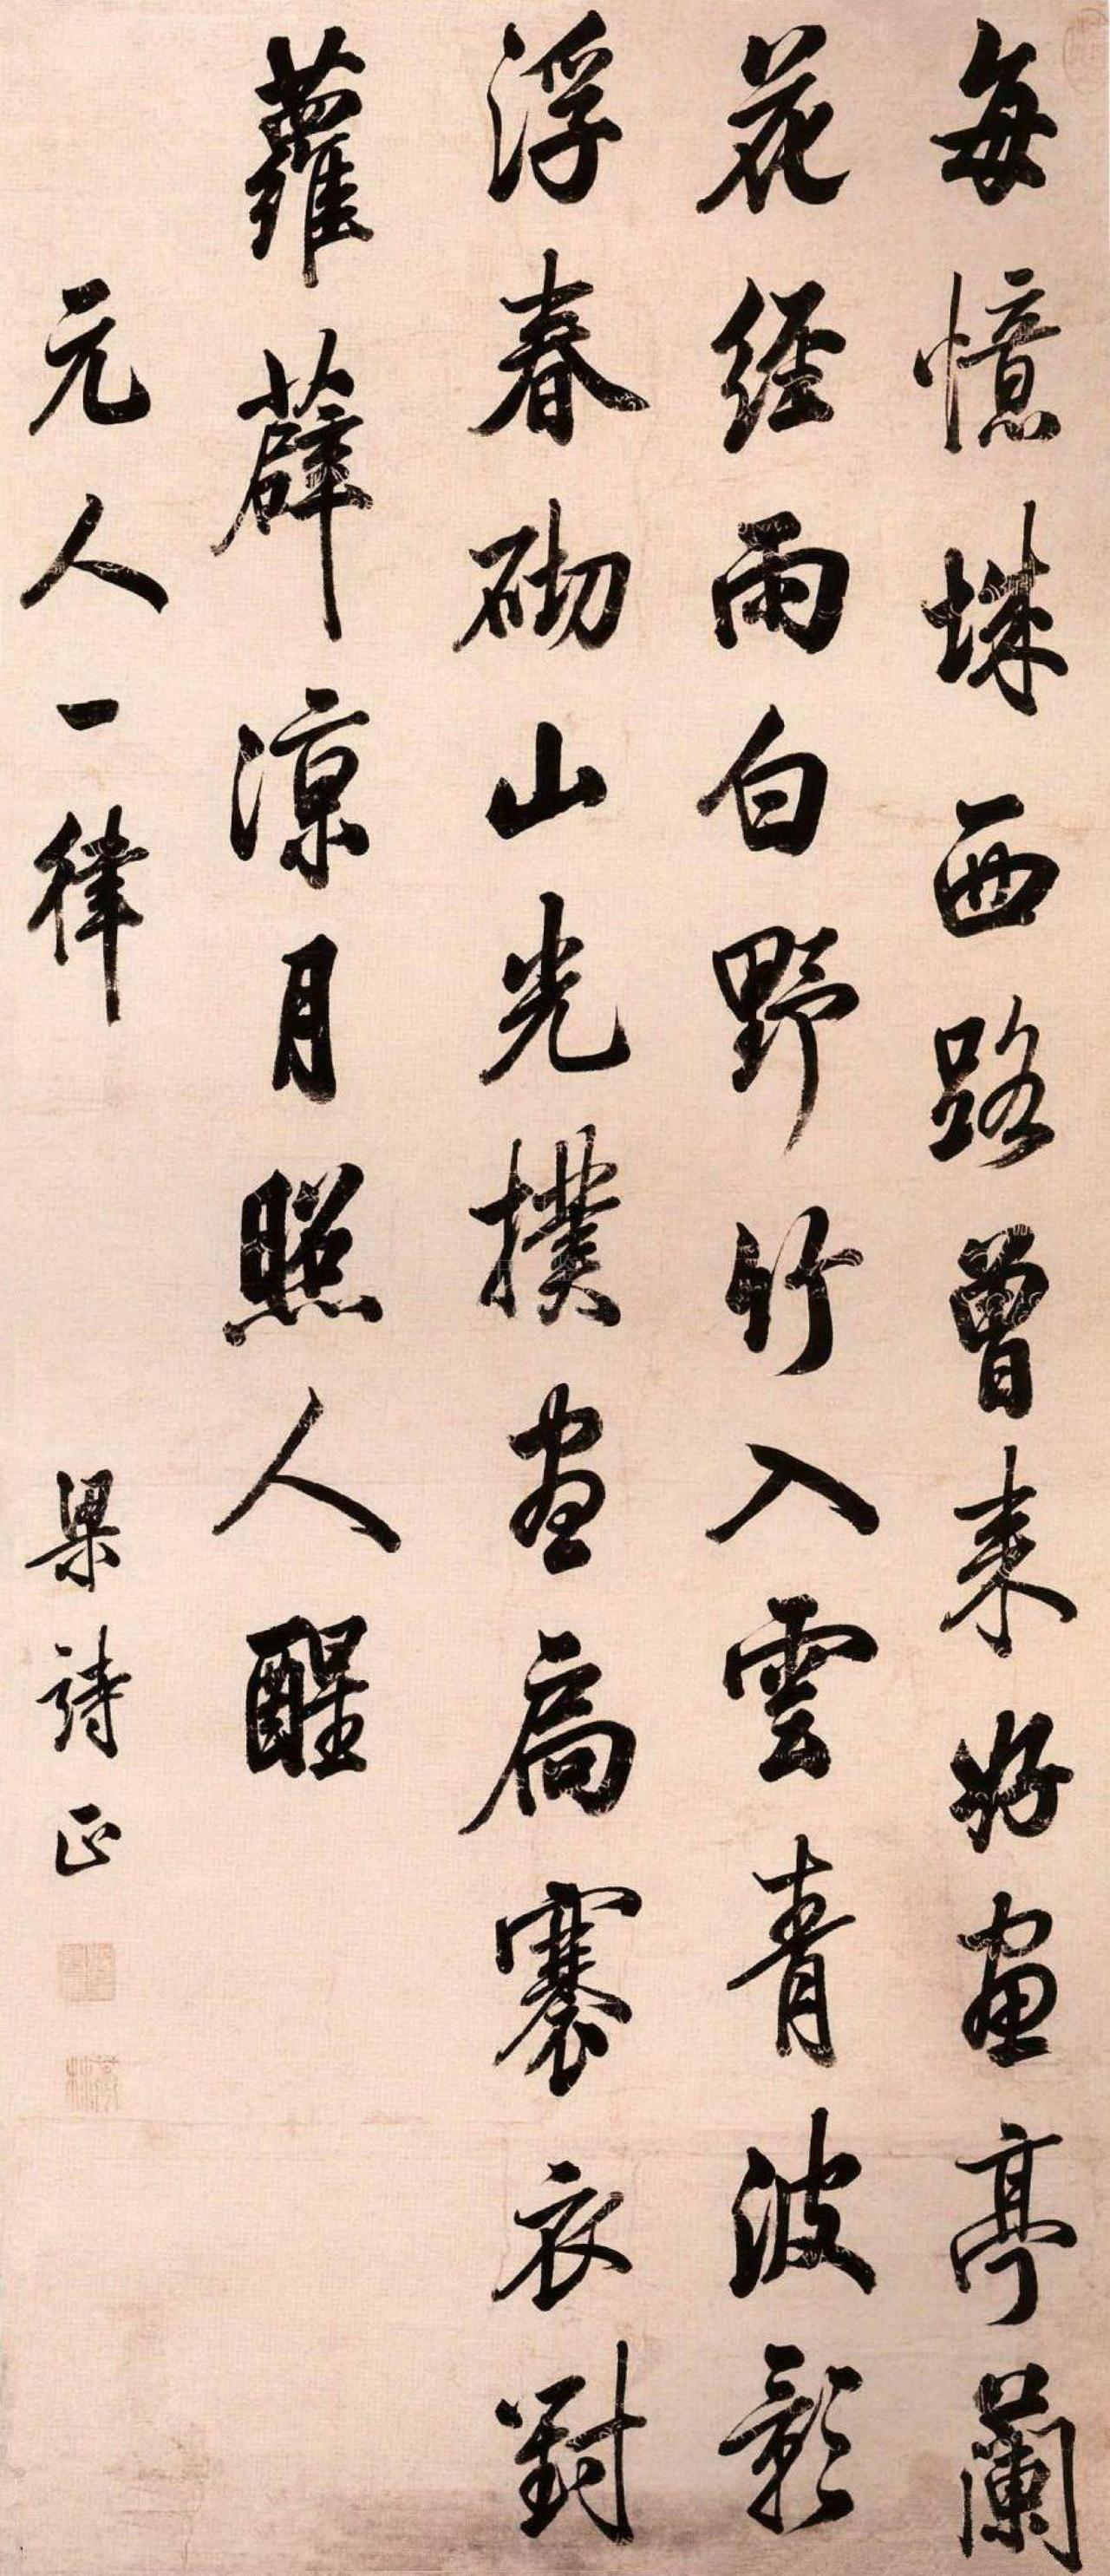 每憶城西路曾来好画亭蘭
花经雨白野竹入雲青波影
浮春砌山光撲画扃褰衣對
蘿薜涼月照人醒
元人一律
梁詩正